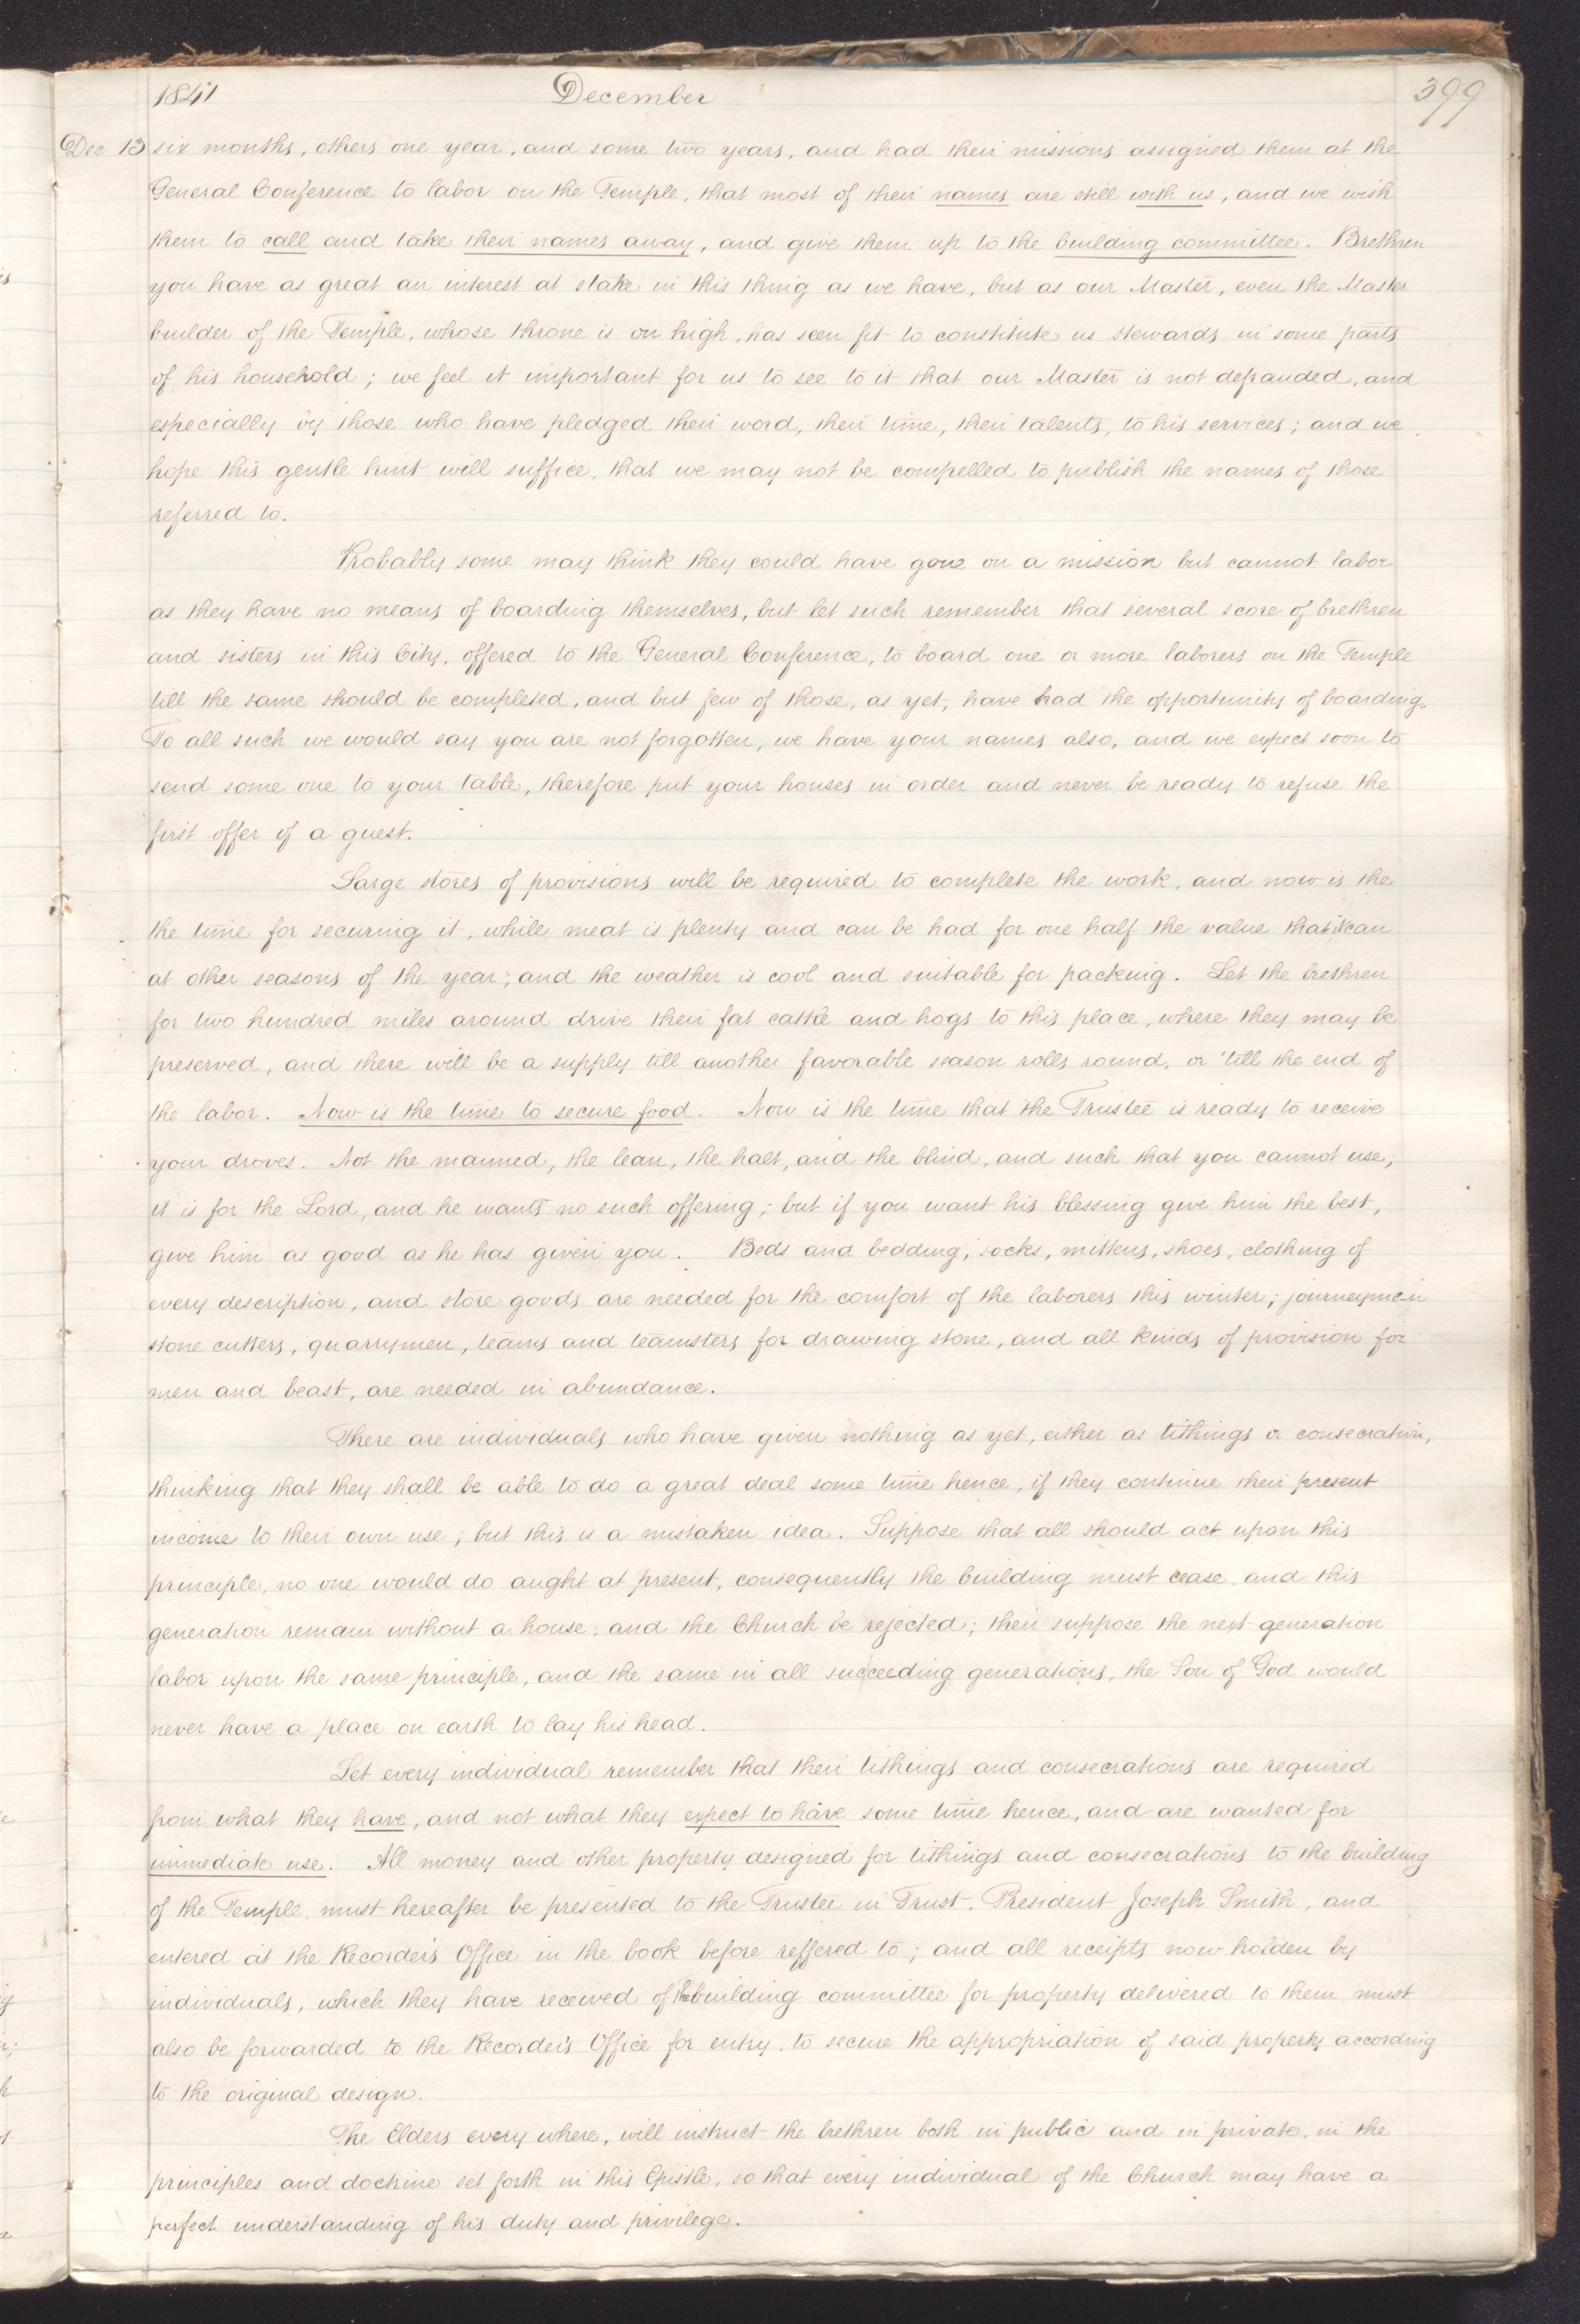 1841 December 399
Dec 13 six months, others one year, and some two years, and had their missions assigned them at the
General Conference to labor on the Temple, that most of their names are still with us, and we wish
them to call and take their names away, and give them up to the building committee. Brethren
you have as great an interest at stake in this thing as we have, but as our Master, even the Master
builder of the Temple, whose throne is on high, has seen fit to constitute us stewards in some parts
of his household; we feel it important for us to see to it that our Master is not defrauded, and
especially by those who have pledged their word, their time, their talents, to his services; and we
hope this gentle hint will suffice, that we may not be compelled to publish the names of those
referred to.
Probably some may think they could have gone on a mission but cannot labor
as they have no means of boarding themselves, but let such remember that several score of brethren
and sisters in this City, offered to the General Conference, to board one or more laborers on the Temple
till the same should be completed, and but few of those, as yet, have had the opportunity of boarding.
To all such we would say you are not forgotten, we have your names also, and we expect soon to
send some one to your table, therefore put your houses in order and never be ready to refuse the
first offer of a guest.
Large stores of provisions will be required to complete the work, and now is the
the time for securing it, while meat is plenty and can be had for one half the value that it can
at other seasons of the year; and the weather is cool and suitable for packing. Let the brethren
for two hundred miles around drive their fat cattle and hogs to this place, where they may be
preserved, and there will be a supply till another favorable season rolls round, or 'till the end of
the labor. Now is the time to secure food. Now is the time that the Trustee is ready to receive
your droves. Not the maimed, the lean, the halt, and the blind, and such that you cannot use;
it is for the Lord, and he wants no such offering; but if you want his blessing give him the best,
give him as good as he has given you. Beds and bedding, socks, mittens, shoes, clothing of
every description, and store goods are needed for the comfort of the laborers this winter; journeymen
stone cutters, quarrymen, teams and teamsters for drawing stone, and all kinds of provision for
men and beast, are needed in abundance.
There are individuals who have given nothing as yet, either as tithings or consecration,
thinking that they shall be able to do a great deal some time hence, if they continue their present
income to their own use; but this is a mistaken idea. Suppose that all should act upon this
principle, no one would do aught at present, consequently the building must cease, and this
generation remain without a house, and the Church be rejected; then suppose the next generation
labor upon the same principle, and the same in all succeeding generations, the Son of God would
never have a place on earth to lay his head.
Let every individual remember that their tithings and consecrations are required
from what they have, and not what they expect to have some time hence, and are wanted for
immediate use. All money and other property designed for tithings and consecrations to the building
of the Temple must hereafter be presented to the Trustee in Trust, President Joseph Smith, and
entered at the Recorder's Office in the book before reffered to; and all receipts now holden by
individuals, which they have received of the building committee for property delivered to them, must
also be forwarded to the Recorder's Office for entry, to secure the appropriation of said property according
to the original design.
The Elders every where, will instruct the brethren both in public and in private, in the
principles and doctrine set forth in this Epistle, so that every individual of the Church may have a
perfect understanding of his duty and privilege.